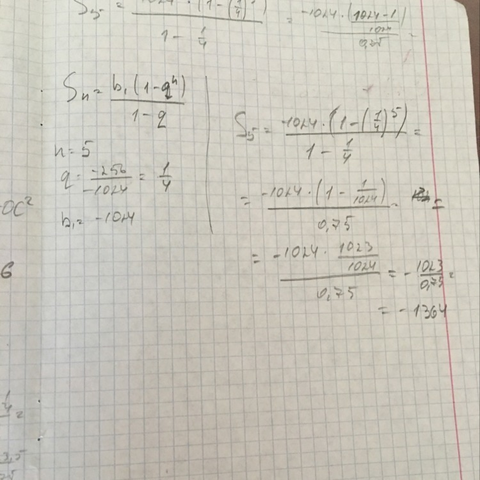 S₅ = -1024 · (1-(1/4)⁵) / 1 - 1/4 = -1024 · (1024-1 / 1024) / 0,75 =
Sₙ = b₁ (1-qⁿ) / 1-q
n = 5
q = -256 / -1024 = 1/4
b₁ = -1024
S₅ = -1024 · (1-(1/4)⁵) / 1 - 1/4 =
= -1024 · (1 - 1/1024) / 0,75 =
= -1024 · 1023/1024 / 0,75 = - 1023/0,75 =
= -1364